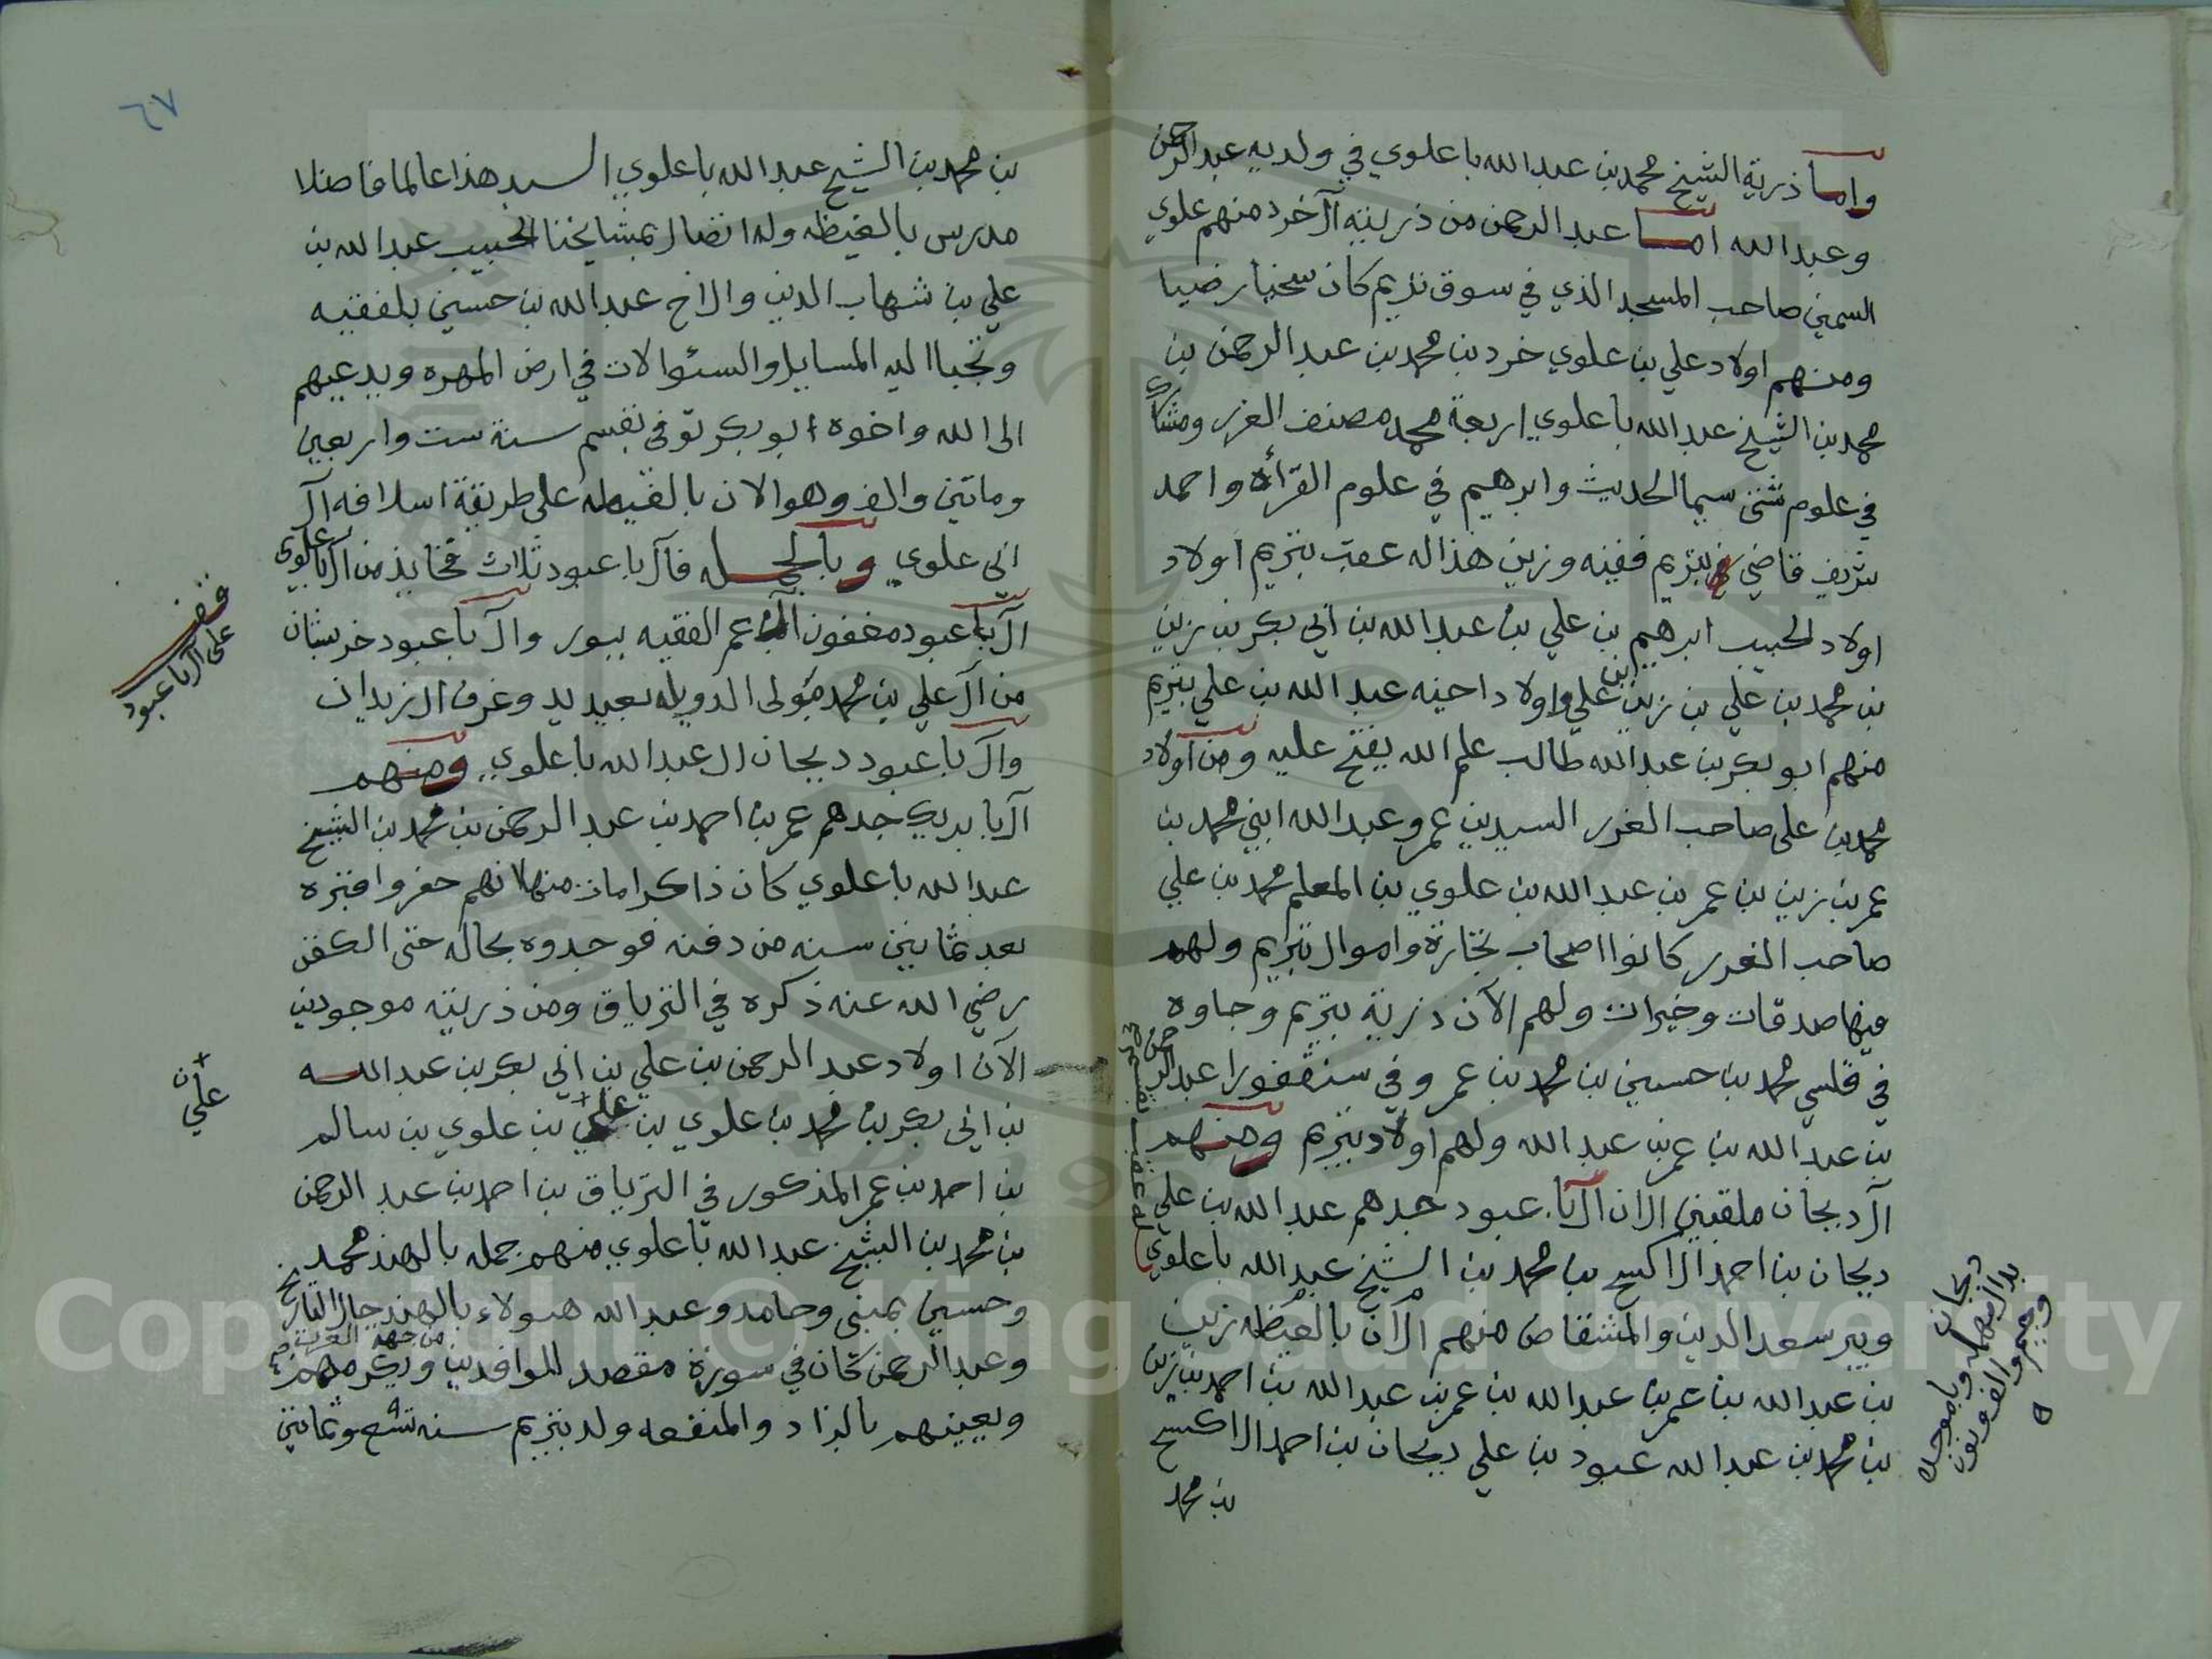 واما ذرية الشيخ محمد بن عبد الله باعلوي في ولديه عبد الرحمن
وعبد الله اما عبد الرحمن من ذريته آل خرد منهم علوي
السمين صاحب المسجد الذي في سوق تريم كان سخيا رضيا
ومنهم اولاد علي بن علوي خرد بن محمد بن عبد الرحمن بن
محمد بن الشيخ عبد الله باعلوي اربعة محمد مصنف الغرر ومشارك
في علوم شتى سيما الحديث وابرهيم في علوم القرأة واحمد
شريف قاضي بتريم فقيه وزين هذا له عقب بتريم اولاد
اولاد الحبيب ابرهيم بن علي بن عبد الله بن ابي بكر بن زين
بن محمد بن علي بن زين بن علي واولاد اخيه عبد الله بن علي بتريم
منهم ابو بكر بن عبد الله طالب علم الله يفتح عليه ومن اولاد
محمد بن علي صاحب الغرر السيدين عمر وعبد الله ابني محمد بن
عمر بن زين بن عمر بن عبد الله بن علوي بن المعلم محمد بن علي
صاحب الغرر كانوا اصحاب تجارة واموال بتريم ولهم
فيها صدقات وخيرات ولهم الآن ذرية بتريم وجاوه
في قلسي محمد بن حسين بن محمد بن عمر وفي سنقفورا عبد الرحمن
بن عبد الله بن عمر بن عبد الله ولهم اولاد بتريم ومنهم
آل دبجان ملقبين الان آل با عبود جدهم عبد الله بن علي
دبجان بن احمد الاكسح بن محمد بن الشيخ عبد الله باعلوي
وببر سعد الدين والمشقاص منهم الآن بالغيظه زين
بن عبد الله بن عمر بن عبد الله بن عمر بن عبد الله بن احمد بن زين
بن محمد بن عبد الله عبود بن علي دبجان بن احمد الاكسح
بن محمد
له عقب بقسم
دبجان
بدال مهمله وباموحده
وجيم والف ونون
٦٧
بن محمد بن الشيخ عبد الله باعلوي السيد هذا عالما فاضلا
مدرس بالغيظه وله اتصال بمشايخنا الحبيب عبد الله بن
علي بن شهاب الدين والاخ عبد الله بن حسين بلفقيه
وتجيا اليه المسايل والسئوالات في ارض المهره ويدعيهم
الى الله واخوه ابو بكر توفى بقسم سنة ست واربعين
وماتين والف وهو الان بالغيظه على طريقة اسلافه آل
ابي علوي وبالجمله فآل با عبود ثلاث فخايذ من آل باعلوي
آل با عبود مغفون آل عمر الفقيه ببور وآل با عبود خربشان
من آل علي بن محمد مولى الدويله بعيديد وغرف آل زيدان
وآل با عبود دبجان آل عبد الله باعلوي ومنهم
آل با بريك جدهم عمر بن احمد بن عبد الرحمن بن محمد بن الشيخ
عبد الله باعلوي كان ذا كرامات منها انهم حفروا قبره
بعد ثمانين سنه من دفنه فوجدوه بحاله حتى الكفن
رضي الله عنه ذكره في الترياق ومن ذريته موجودين
الآن اولاد عبد الرحمن بن علي بن ابي بكر بن عبد الله
بن ابي بكر بن محمد بن علوي بن علي بن علوي بن سالم
بن احمد بن عمر المذكور في الترياق بن احمد بن عبد الرحمن
بن محمد بن الشيخ عبد الله باعلوي منهم جمله بالهند محمد
وحسين بمبنى وحامد وعبد الله هولاء بالهند حال التاريخ
من جهة العرب
وعبد الرحمن كان في سورة مقصد للوافدين ويكرمهم
ويعينهم بالزاد والمنفعه ولد بتريم سنه تسع وثمانين
قف
على آل با عبود
علي
Copyright © King Saud University